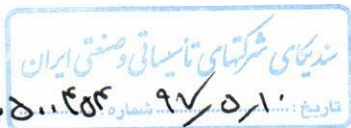 سندیکای شرکتهای تأسیساتی و صنعتی ایران
تاریخ: ۹۷/۵/۱۰ شماره: ۵۰۰۴۵۴